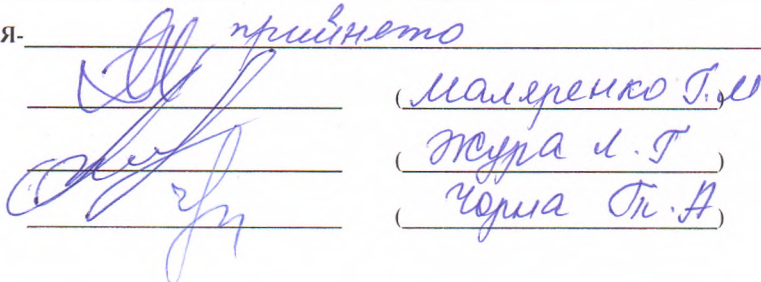 я- прийнето
(Маляренко Г.М)
(Жура Л.Г)
(Чорна Т.А)